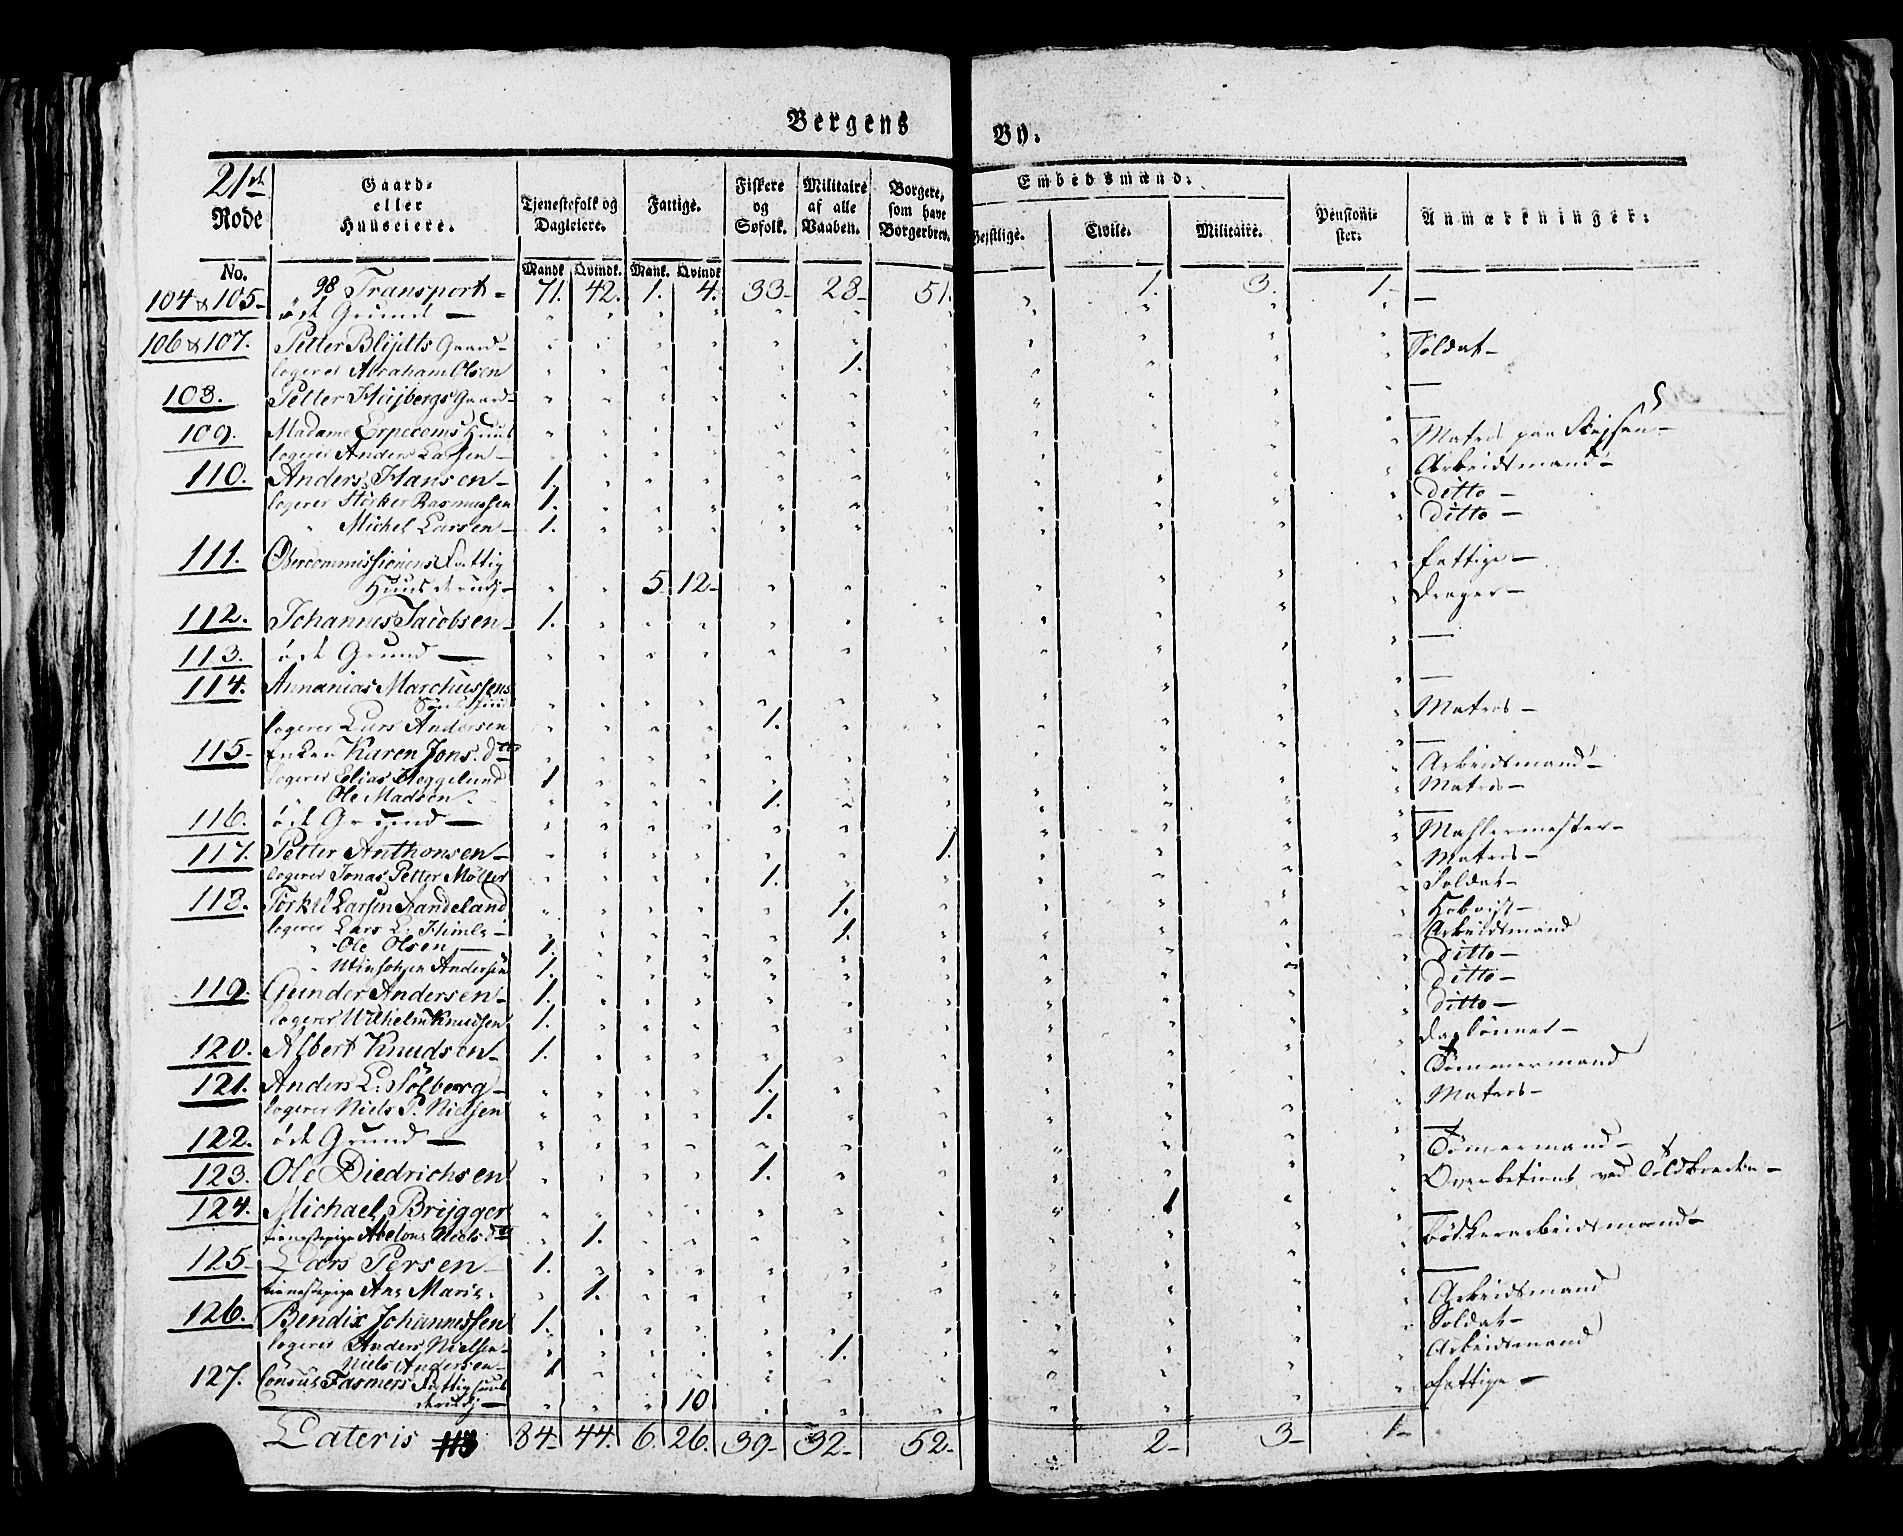 Bergens By.
21de Rode
No.
Gaard- eller Huuseiere.
Tjenestefolk og Dagleiere.
Mandk. Qvindk.
Fattige.
Mank. Qvindk.
Fiskere og Søfolk.
Militaire af alle Vaaben.
Borgere, som have Borgerbrev.
Embedsmænd.
Geistlige.
Civile.
Militaire.
Pensionister.
Anmærkninger.
98 Transport 71. 42. 1. 4. 33 28 51. " 1. 3. 1 —
104 & 105 öde Grund —
106 & 107. Petter Blijdts Gaard
logerer Abraham Olsen 1. Soldat
108. Petter Heijbergs Gaard —
109. Madame Erpecoms Huus —
logerer Anders Larsen Matros paa Reijsen
110. Anders Hansen 1. Arbeidsmand
logerer Störker Rasmussen 1. ditto
" Michel Larsen 1. ditto
111. Overcommissionens Fattig
Huus 5. 12 fattige
112. Johannes Jacobsen 1. Drager
113. öde Grund —
114. Annanias Marchussens —
logerer Lars Andersen 1. Matros
115 Enken Karen Jons. dtr —
logerer Elias Heggelund 1 Arbeidsmand
Ole Madsen 1. Matros
116. öde Grund —
117. Petter Anthonsen 1. Mahlermester
logerer Jonas Petter Möller 1. Matros
118. Törkel Larsen Sandeland 1. Soldat
logerer Lars L. Himle 1.
" Ole Olsen 1. Arbeidsmand
" Andersen 1. ditto
119. Gunder Andersen 1. ditto
logerer Wilhelm Knudsen 1. ditto
120. Albert Knudsen 1.
121. Anders L. Sölberg 1. Tömmermand
logerer Niels P. Nielsen 1. Matros
122. öde Grund —
123. Ole Diedrichsen 1. Tömermand
124. Michael Brijgger 1 ved Toldboeden
tienestepige Abelone Niels dtr 1. —
125 Lars Persen 1. bödkerarbeidsmand
tienestepige Ane Marie 1. —
126. Bendix Johannessen 1. Arbeidsmand
logerer Anders Nielsen 1. Soldat
Niels Andersen 1 Arbeidsmand
127. Consul Fasmers Fattighuus
10 fattige
Lateris 84 44. 6. 26. 39 32 52 2 3 1